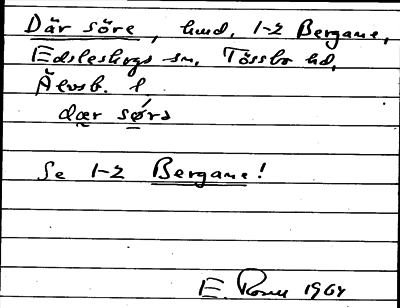 Där söre, hmd, 1-2 Bergane,
Edsleskogs sn, Tössbo hd,
Älvsb. l.
dær sǿrə
Se 1-2 Bergane!
E. Rosell 1964